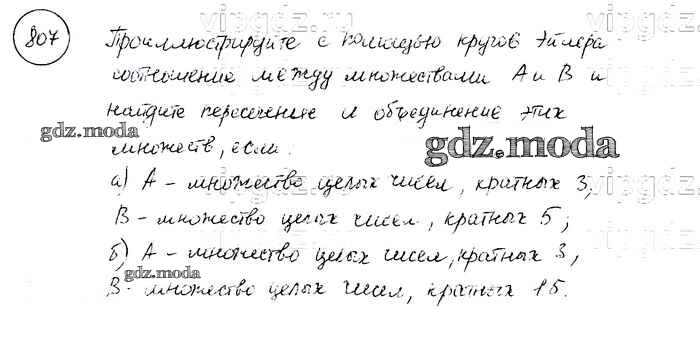 vipgdz
vipgdz
807 Проиллюстрируйте с помощью кругов Эйлера
соотношение между множествами А и В и
найдите пересечение и объединение этих
gdz.moda
множеств, если.
gdz.moda
а) А - множество целых чисел, кратных 3,
vipgdz
В - множество целых чисел, кратных 5;
vipgdz
б) А - множество целых чисел, кратных 3,
gdz.moda
В - множество целых чисел, кратных 15.